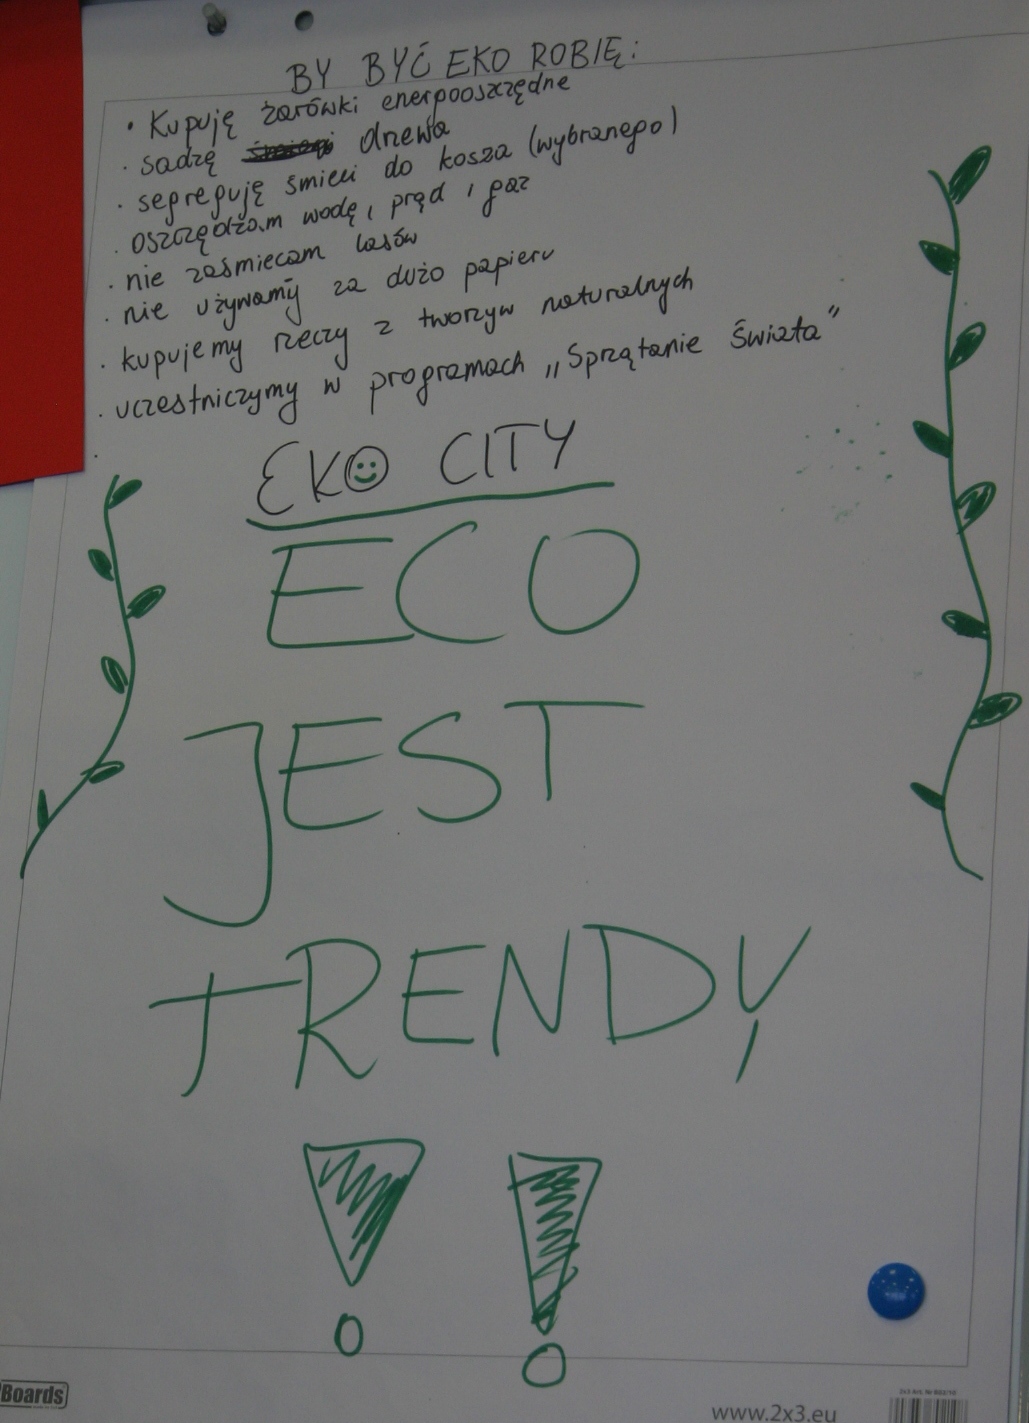 BY BYĆ EKO ROBIĘ:
• Kupuję żarówki energooszczędne
• sadzę drzewa
• segreguję śmieci do kosza (wybranego)
• oszczędzam wodę, prąd i gaz
• nie zaśmiecam lasów
• nie używamy za dużo papieru
• kupujemy rzeczy z tworzyw naturalnych
• uczestniczymy w programach „Sprzątanie Świata”
•
EKO CITY
ECO
JEST
TRENDY
!!
Boards
www.2x3.eu